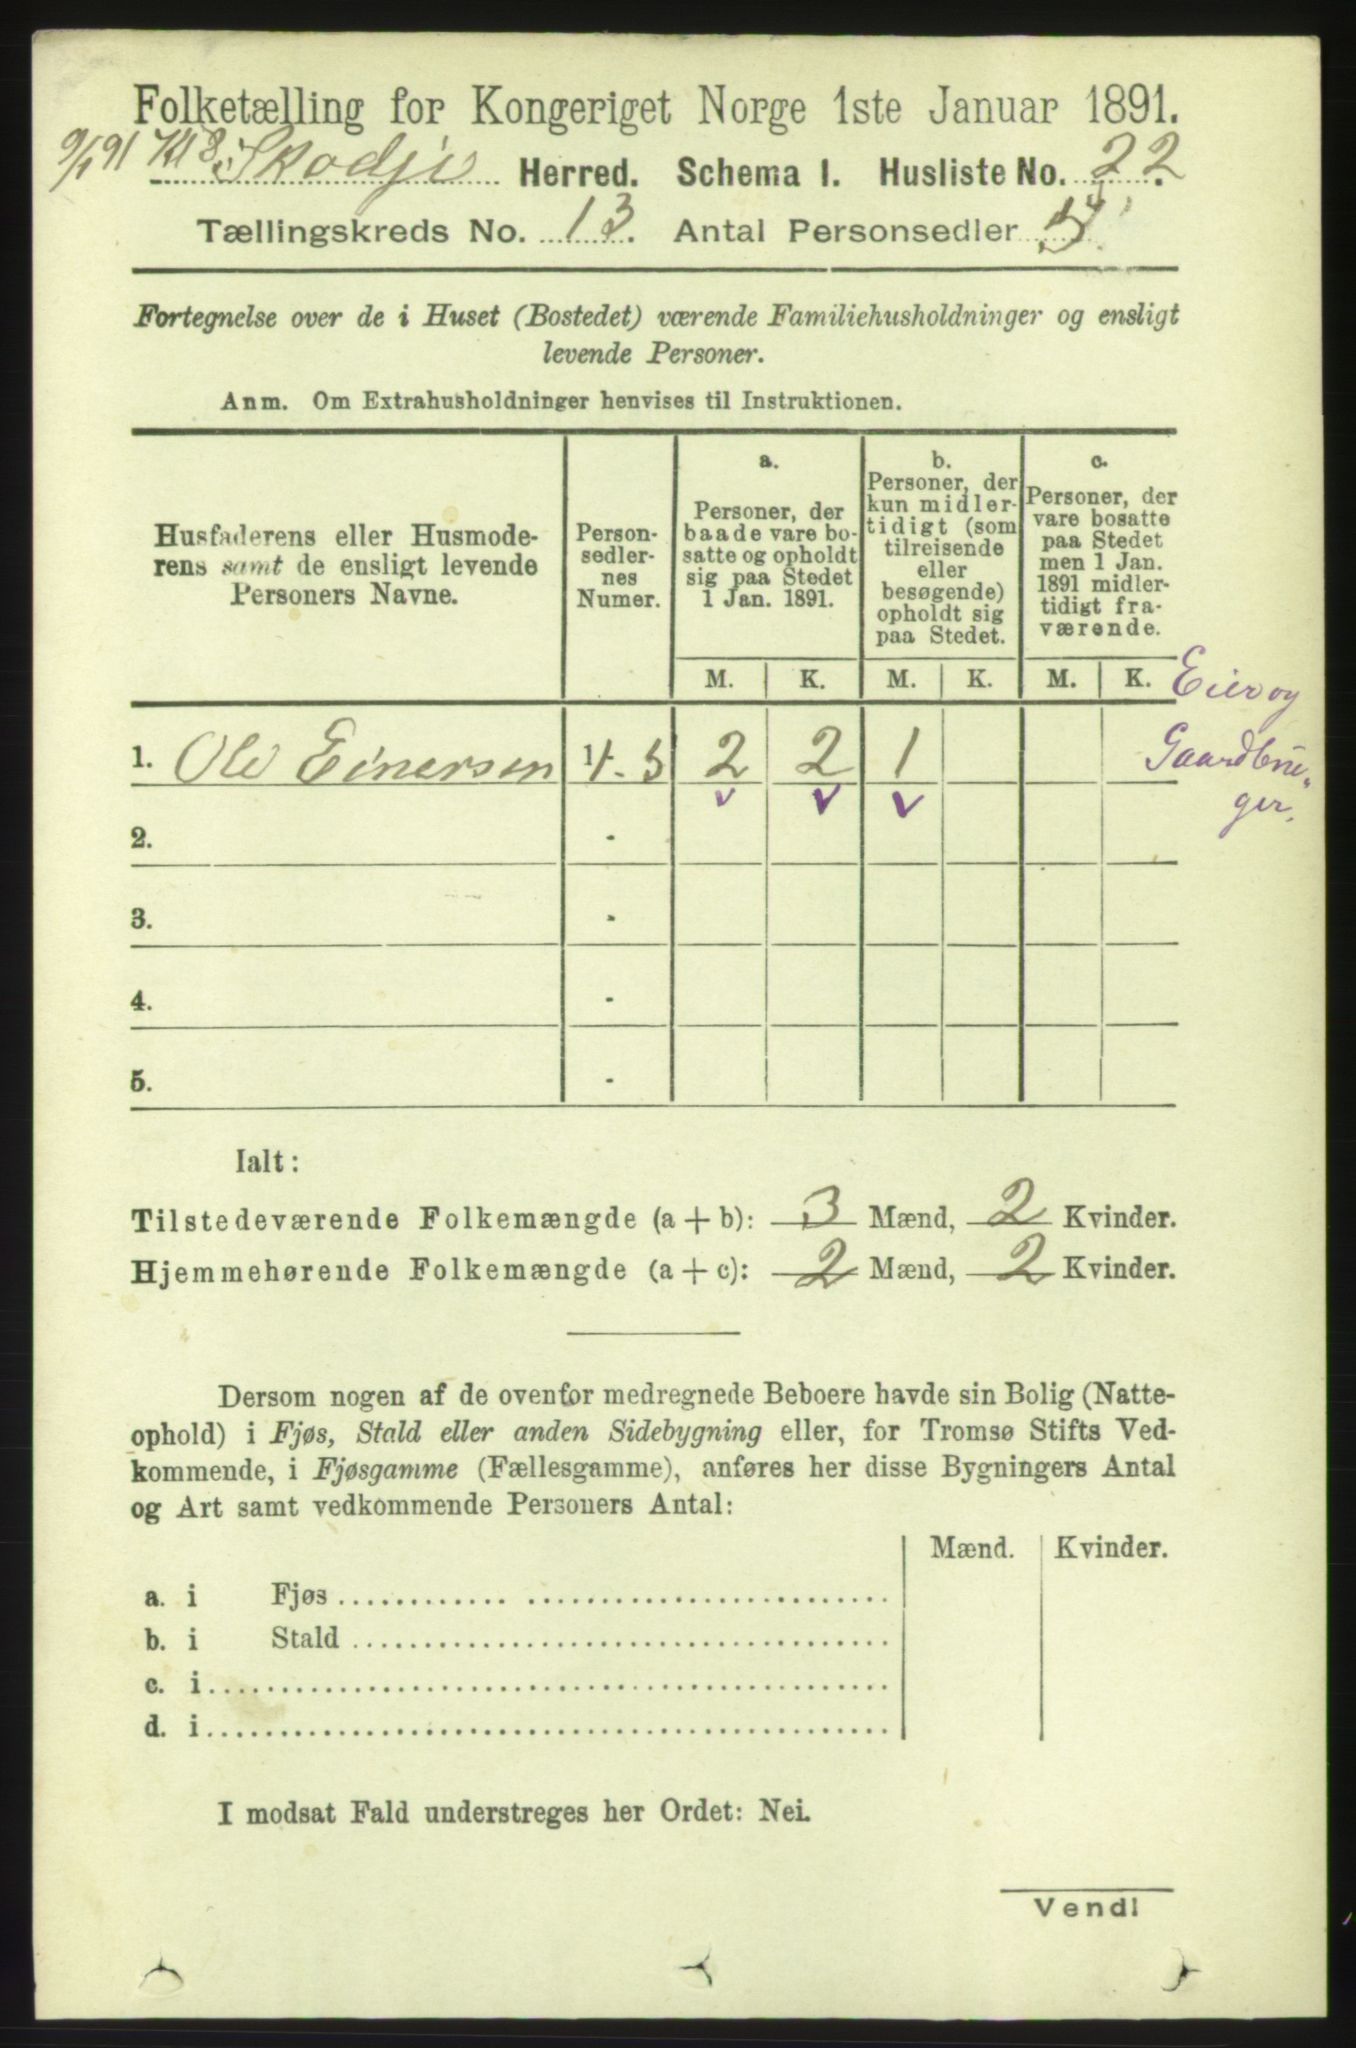 Folketælling for Kongeriget Norge 1ste Januar 1891.
9/1 91 Kl 8. Skodje Herred. Schema I. Husliste No. 22.
Tællingskreds No. 13. Antal Personsedler
Fortegnelse over de i Huset (Bostedet) værende Familiehusholdninger og ensligt
levende Personer.
Anm. Om Extrahusholdninger henvises til Instruktionen.
Husfaderens eller Husmode-
rens samt de ensligt levende
Personers Navne.
Person-
sedler-
nes
Numer.
a.
Personer, der
baade vare bo-
satte og opholdt
sig paa Stedet
1 Jan. 1891.
b.
Personer, der
kun midler-
tidigt (som
tilreisende
eller
besøgende)
opholdt sig
paa Stedet.
c.
Personer, der
vare bosatte
paa Stedet
men 1 Jan.
1891 midler-
tidigt fra-
værende.
M. K. M. K. M. K.
Eier og
Gaardbru-
ger.
1. Ole Einersen 1-5 2 2 1
2. -
3. -
4. -
5. -
Ialt:
Tilstedeværende Folkemængde (a + b): 3 Mænd, 2 Kvinder.
Hjemmehørende Folkemængde (a + c): 2 Mænd, 2 Kvinder.
Dersom nogen af de ovenfor medregnede Beboere havde sin Bolig (Natte-
ophold) i Fjøs, Stald eller anden Sidebygning eller, for Tromsø Stifts Ved-
kommende, i Fjøsgamme (Fællesgamme), anføres her disse Bygningers Antal
og Art samt vedkommende Personers Antal:
Mænd. Kvinder.
a. i Fjøs
b. i Stald
c. i
d. i
I modsat Fald understreges her Ordet: Nei.
Vend!